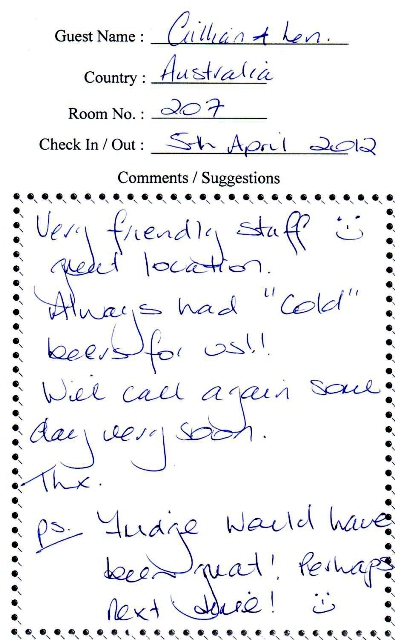 Guest Name : Gillian & Len.
Country : Australia
Room No. : 207
Check In / Out : 5th April 2012
Comments / Suggestions
Very friendly staff :)
great location.
Always had "Cold"
beers for us!!
Will call again some
day very soon.
Thx.
ps. Fudge would have
been great! Perhaps
next time! :)